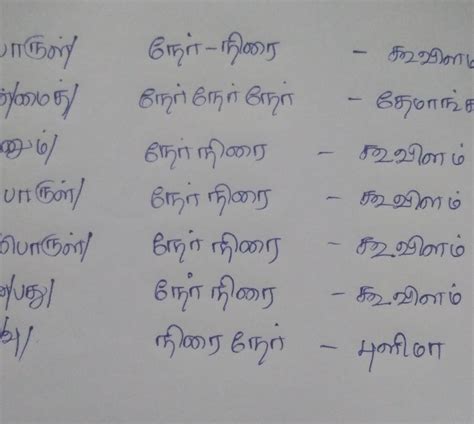 பொருள்/ நேர்-நிரை - கூவிளம்
நேர் நேர் நேர் - தேமாங்க
னும்/ நேர் நிரை - கூவிளம்
பொருள்/ நேர் நிரை - கூவிளம்
பொருள்/ நேர் நிரை - கூவிளம்
பது/ நேர் நிரை - கூவிளம்
வு/ நிரை நேர் - புளிமா